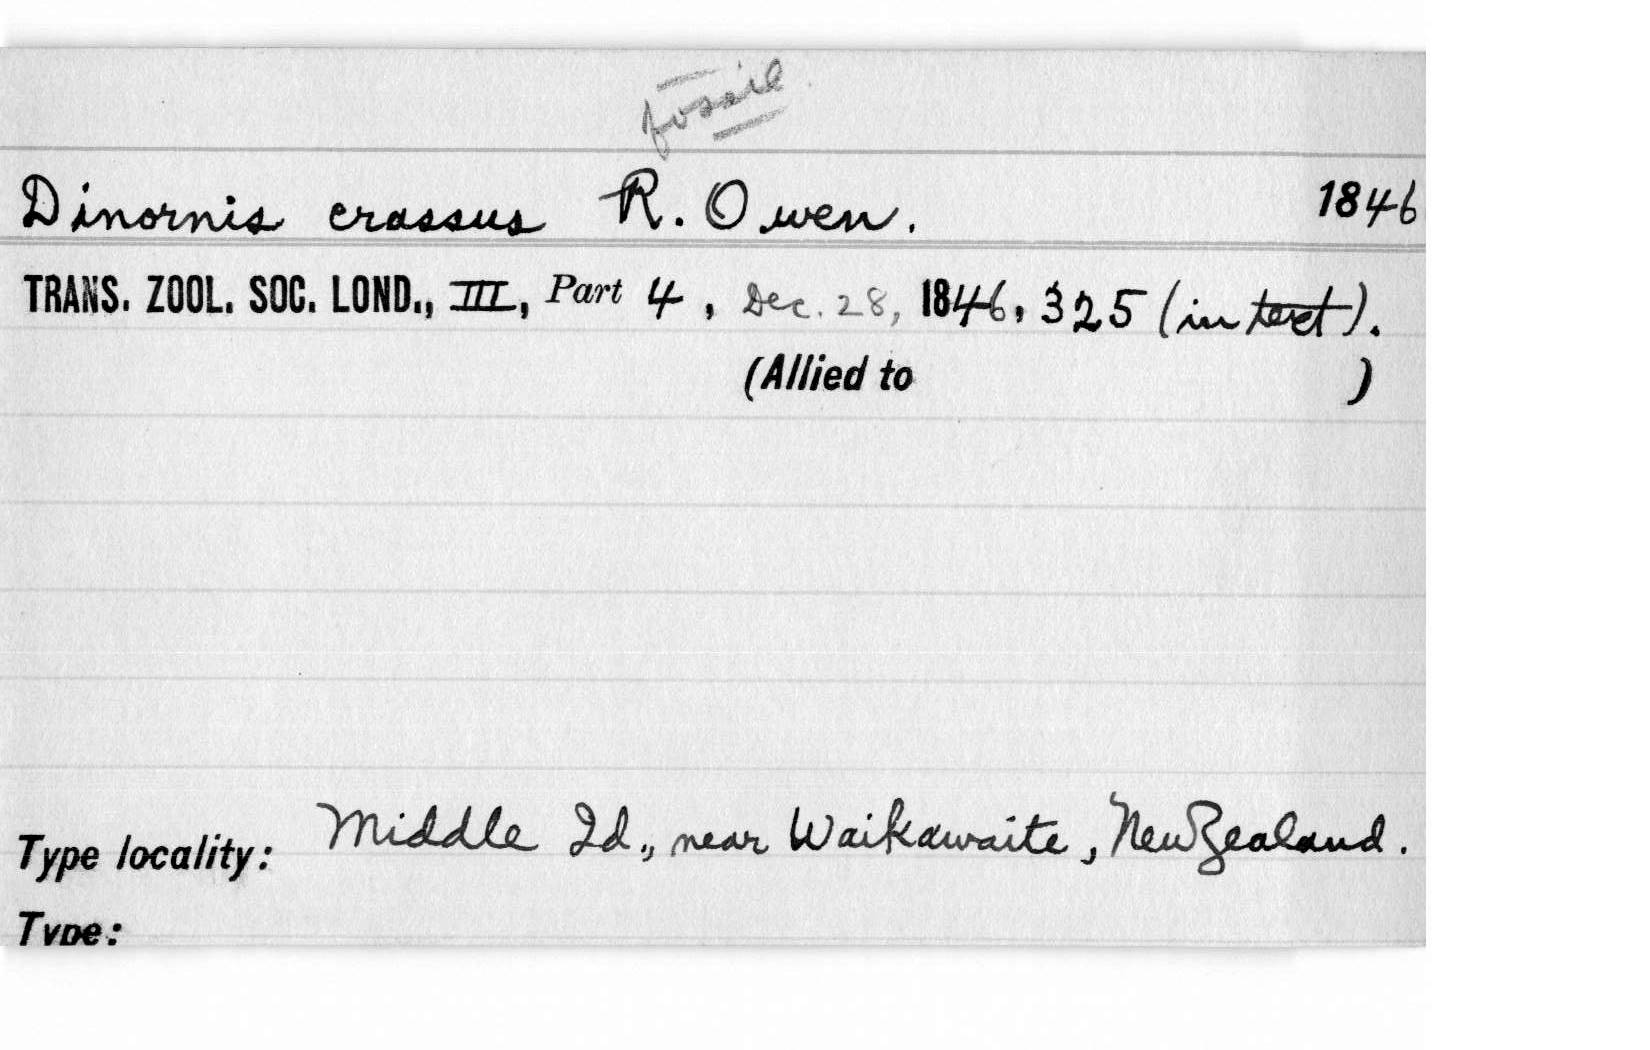 fossil
Dinornis crassus R. Owen. 1846
TRANS. ZOOL. SOC. LOND., III, Part 4, Dec. 28, 1846, 325 (in text).
(Allied to )
Type locality: Middle Id., near Waikawaite, New Zealand.
Type: